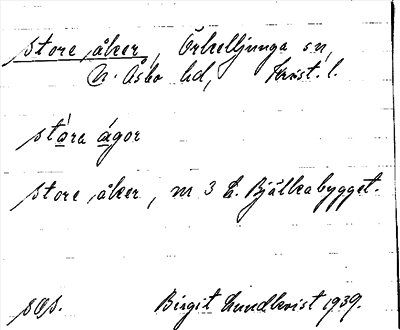 store åker, Örkelljunga sn,
N. Åsbo hd, Krist. l.
stóra ágor
store åker, m 3 L. Bjälkabygget.
sås.
Birgit Lundkvist 1939.